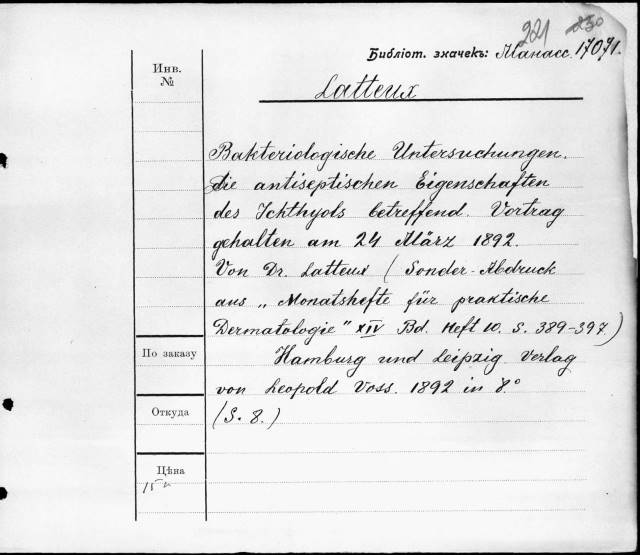 221
Библіот. значекъ: Манасс. 17071.
Инв.
№
Latteux
Bakteriologische Untersuchungen.
die antiseptischen Eigenschaften
des Ichthyols betreffend. Vortrag
gehalten am 24 März 1892.
Von Dr. Latteux (Sonder-Abdruck
aus „Monatshefte für praktische
Dermatologie" XIV Bd. Heft 10. S. 389-397)
По заказу
Hamburg und Leipzig Verlag
von Leopold Voss. 1892 in 8°
Откуда
(S. 8.)
Цѣна
15 к